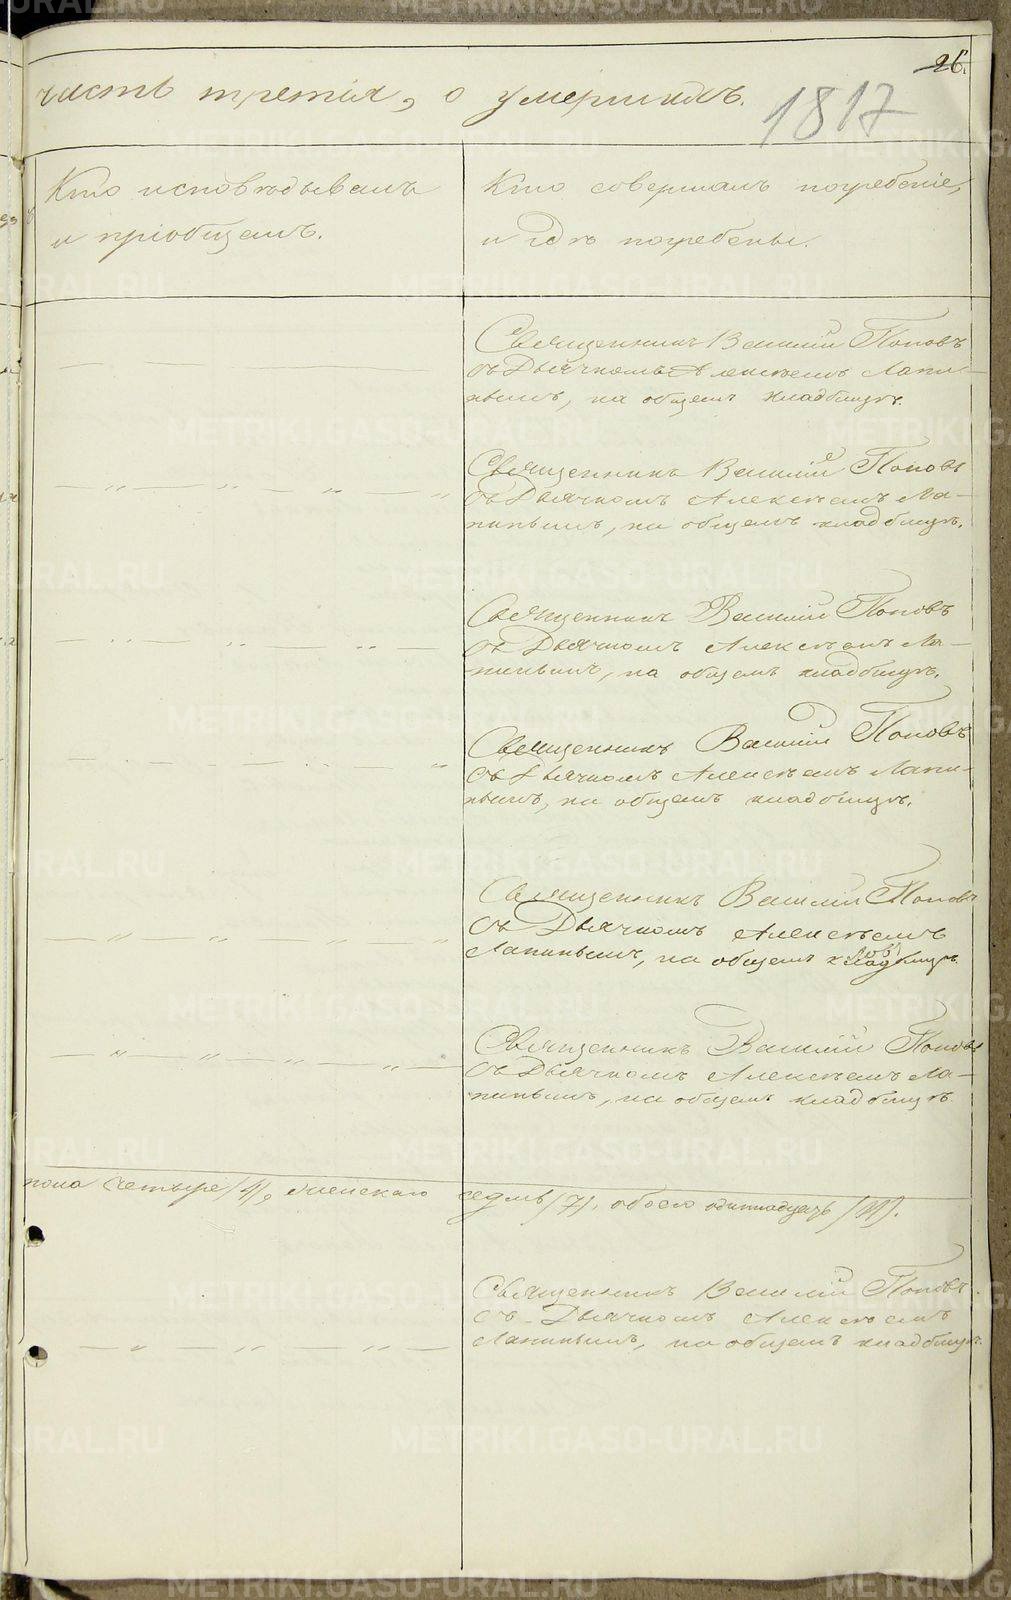 26.
часть третія, о умершихъ.
1817
Кто исповѣдывалъ
и пріобщалъ.
Кто совершалъ погребеніе,
и гдѣ погребены.
Священникъ Василій Поповъ
съ Дьячкомъ Алексѣемъ Лапи-
нымъ, на общемъ кладбищѣ.
Священникъ Василій Поповъ
съ Дьячкомъ Алексѣемъ Ла-
пинымъ, на общемъ кладбищѣ.
Священникъ Василій Поповъ
съ Дьячкомъ Алексѣемъ Ла-
пинымъ, на общемъ кладбищѣ.
Священникъ Василій Поповъ
съ Дьячкомъ Алексѣемъ Лапи-
нымъ, на общемъ кладбищѣ.
Священникъ Василій Поповъ
съ Дьячкомъ Алексѣемъ
Лапинымъ, на общемъ кладбищѣ.
Священникъ Василій Поповъ
съ Дьячкомъ Алексѣемъ Ла-
пинымъ, на общемъ кладбищѣ.
пола четыре /4/, женскаго седмь /7/, обоего одиннадцать /11/.
Священникъ Василій Поповъ
съ Дьячкомъ Алексѣемъ
Лапинымъ, на общемъ кладбищѣ.
METRIKI.GASO-URAL.RU